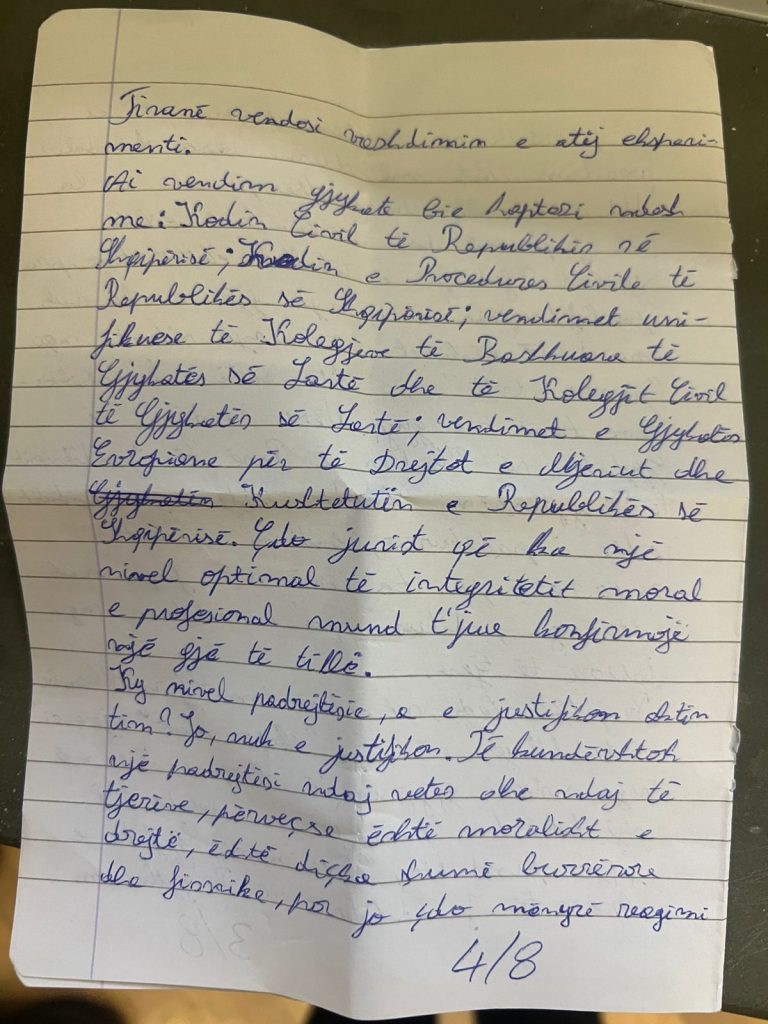 Tiranë vendosi vreshdimin e atij ekspari-
menti.
Ai vendim gjyhate bie haptazi ndesh
me: Kodin Civil të Republikës së
Shqipërisë; Kodin e Procedures Civile të
Republikës së Shqipërisë; vendimet uni-
fikuese të Kolegjeve të Bashkuara të
Gjykatës së Lartë dhe të Kolegjit Civil
të Gjykatës së Lartë; vendimet e Gjykatës
Evropiane për të Drejtat e Njeriut dhe
Kushtetutën e Republikës së
Shqipërisë. Çdo jurist që ka një
nivel optimal të integritetit moral
e profesional mund t'jua konfirmojë
një gjë të tillë.
Ky nivel padrejtësie, a e justifikon aktin
tim? Jo, nuk e justifikon. Të kundërshtosh
një padrejtësi ndaj vetes dhe ndaj të
tjerëve, përveçse është moralisht e
drejtë, është diçka shumë burrërore
dhe fisnike, por jo çdo mënyrë reagimi
4/8
3/8